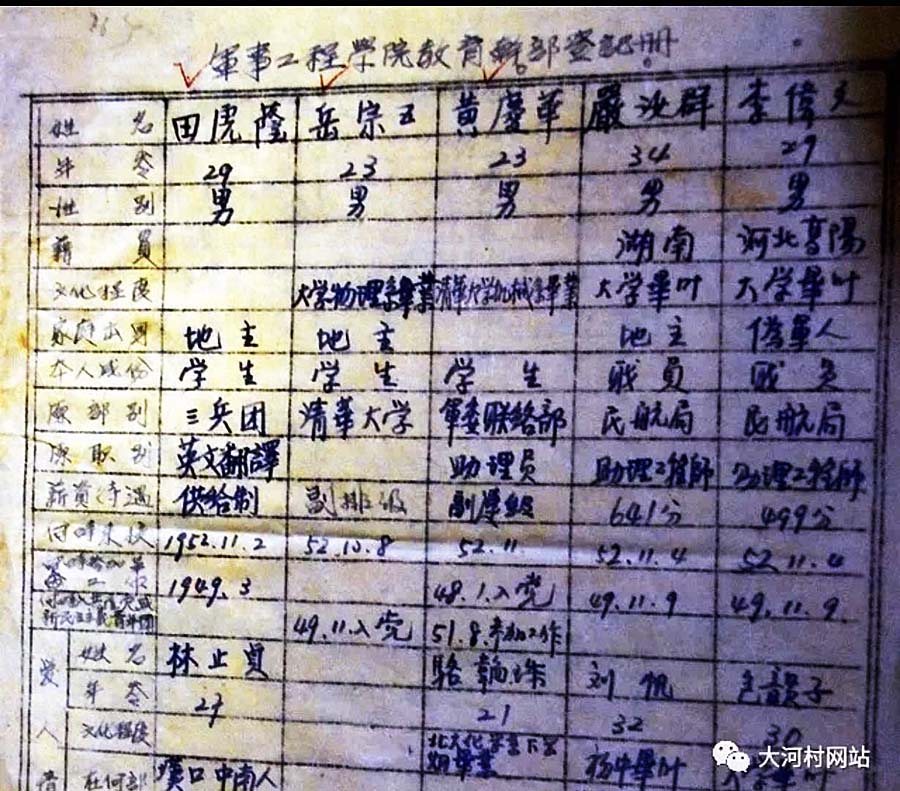 軍事工程學院教育幹部登記册
姓名 田虎隆 岳宗五 黃慶華 嚴汝群 李偉文
年令 29 23 23 34 29
性别 男 男 男 男 男
湖南 河北
文化程度 大学物理系畢業 清華大学机械系畢業 大学畢叶 大学畢叶
家庭出身 地主 地主 地主 偽軍人
本人成份 学生 学生 学生 職員 職員
原部别 三兵团 清華大学 軍委联絡部 民航局 民航局
原职别 英文翻譯 助理员 助理工程師 助理工程師
薪資待遇 供给制 副排级 副連级 641分 499分
何時来校 1952.11.2 52.10.8 52.11. 52.11.4 52.11.4
1949.3 48.1.入党 49.11.9 49.11.9.
49.11.入党 51.8.参加工作
爱 姓名 林止貞 刘帆
年令 21 32 30
人 文化程度
在何部 漢口中南人
大河村网站